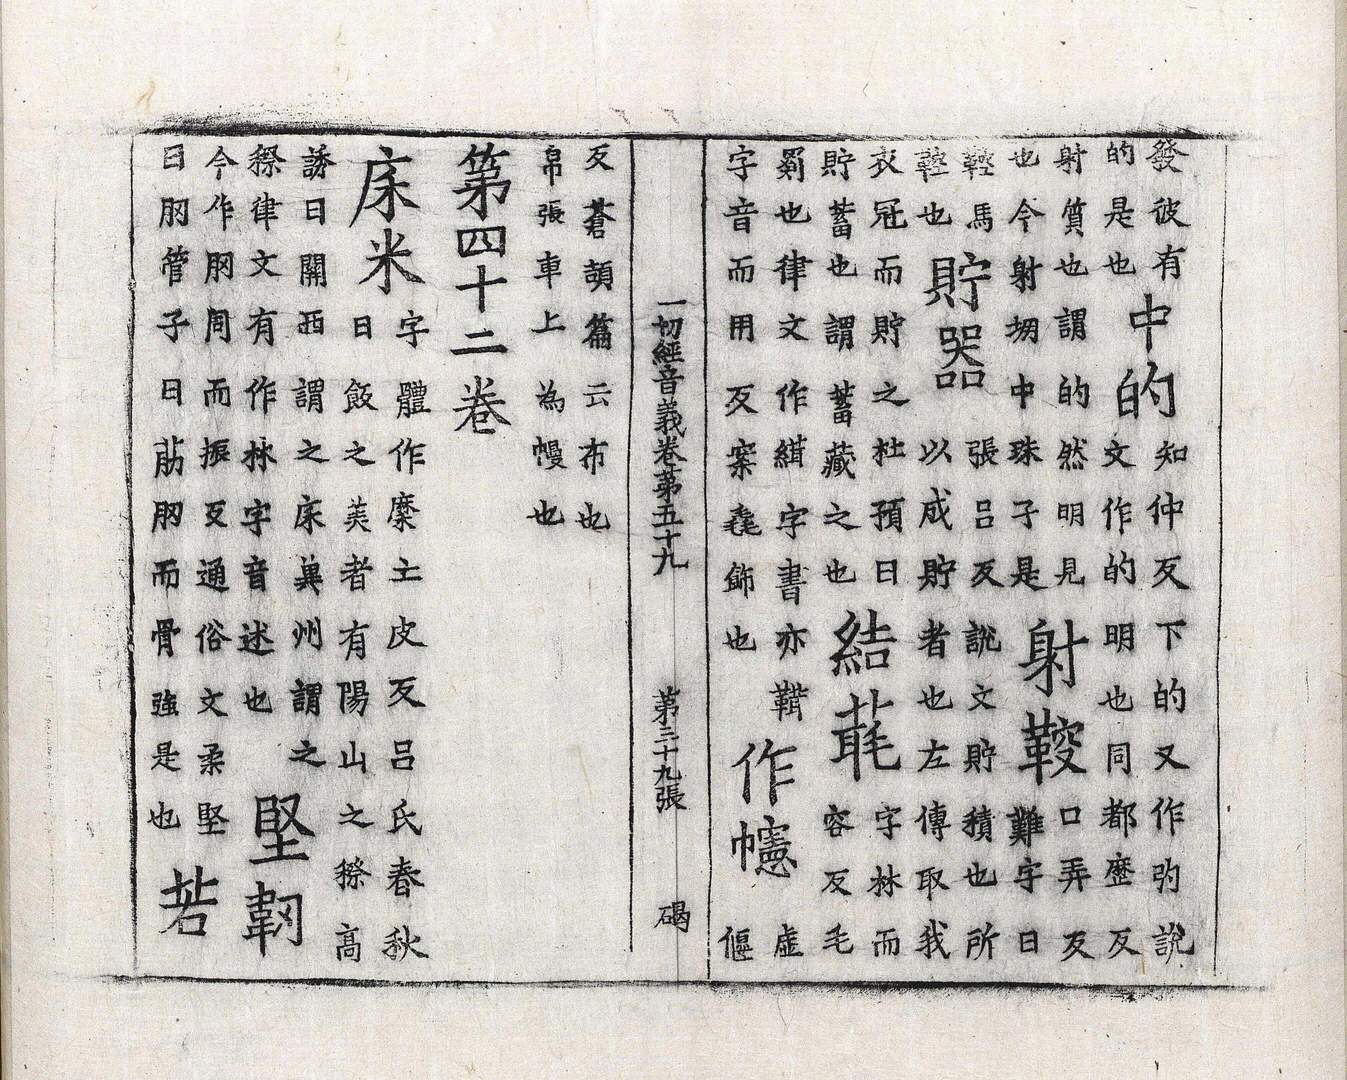 發彼有
的是也
中的
知仲反下的又作㫁說
文作的明也同都歷反
射質也謂的然明見
也今射堋中珠子是
射鞍
口弄反
難字曰
鞚馬
鞚也
貯器
張呂反說文貯積也所
以成貯者也左傳取我
衣冠而貯之杜預曰
貯蓄也謂蓄藏之也
結毦
字林而
容反毛
罽也律文作緝字書亦鞾
字音而用反案毳飾也
作幰
虛
偃
一切經音義卷第五十九　第三十九張　碣
反蒼頡篇云布也
帛張車上為幔也
第四十二卷
床米
字體作糜亡皮反呂氏春秋
曰飯之美者有陽山之穄高
誘曰關西謂之床冀州謂之
穄律文有作秫字音述也
堅韌
今作肕同而振反通俗文柔堅
曰肕管子曰筋肕而骨強是也
若